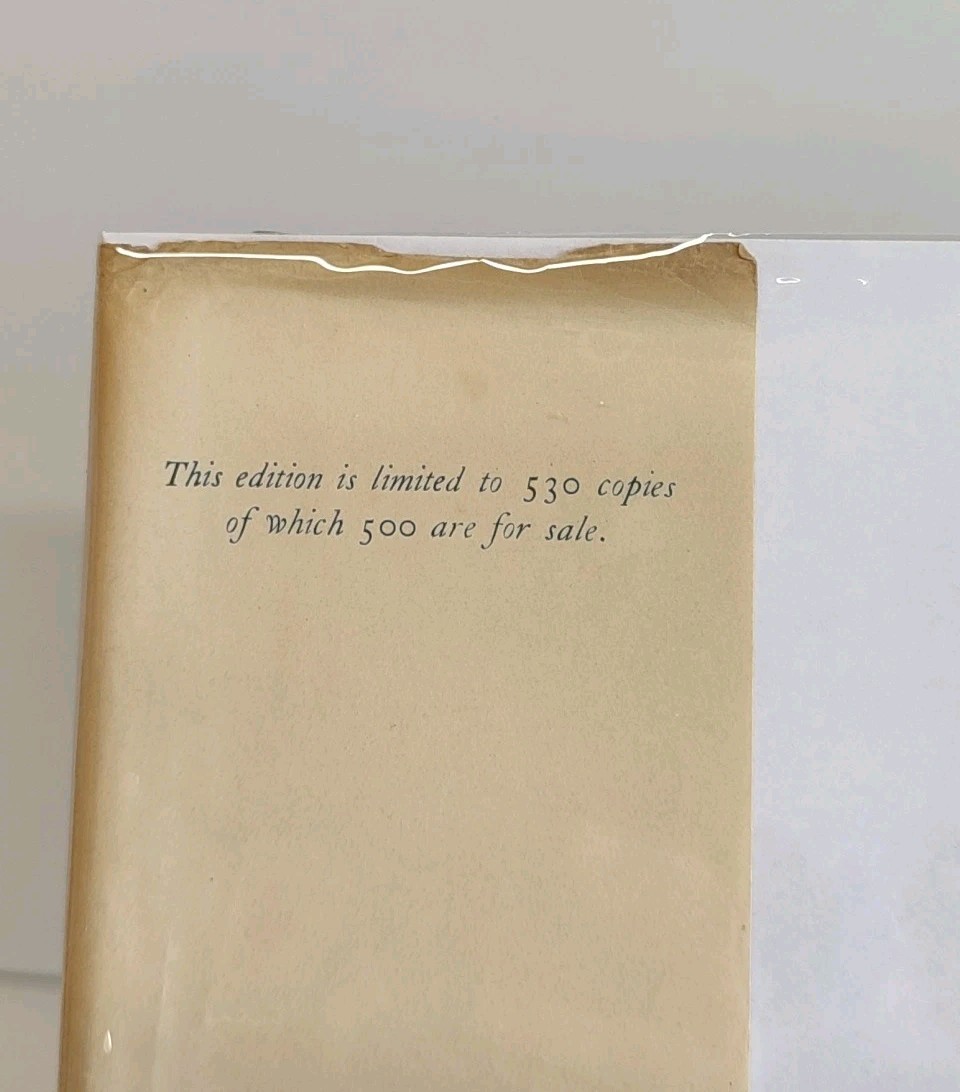 This edition is limited to 530 copies
of which 500 are for sale.